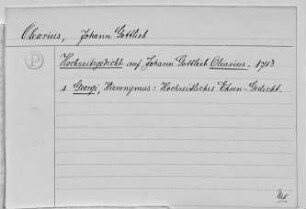 Olearius, Johann Gottlieb
P
Hochzeitsgedicht auf Johann Gottlieb Olearius. 1713
s. Georgi, Hieronymus: Hochzeitliches Ehren-Gedicht.